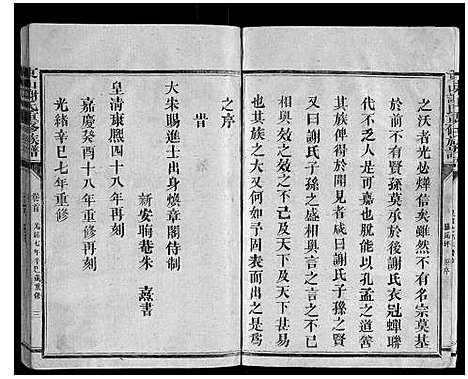 之沃者光必燁信矣雖然不有名宗莫基
於前不有賢孫莫承於後謝氏衣冠蟬聯
當時大顯於天下而不仅以孔孟之道
人族姓得於聞見者咸曰謝氏子孫之賢
又曰謝氏子孫之盛相與言之言之不已
相與不之不已及天下之與天下甚易
其族之大又何如乎固表而出之是爲
之序
旹
大朱賜進士出身焕章閣侍制
新安晦菴朱 熹書
皇清康熙四十八年再刻
嘉慶癸酉十八年再刻
光緒辛巳七年重修
東山謝氏重修族譜
卷首
光緒七年辛巳歲重修
三